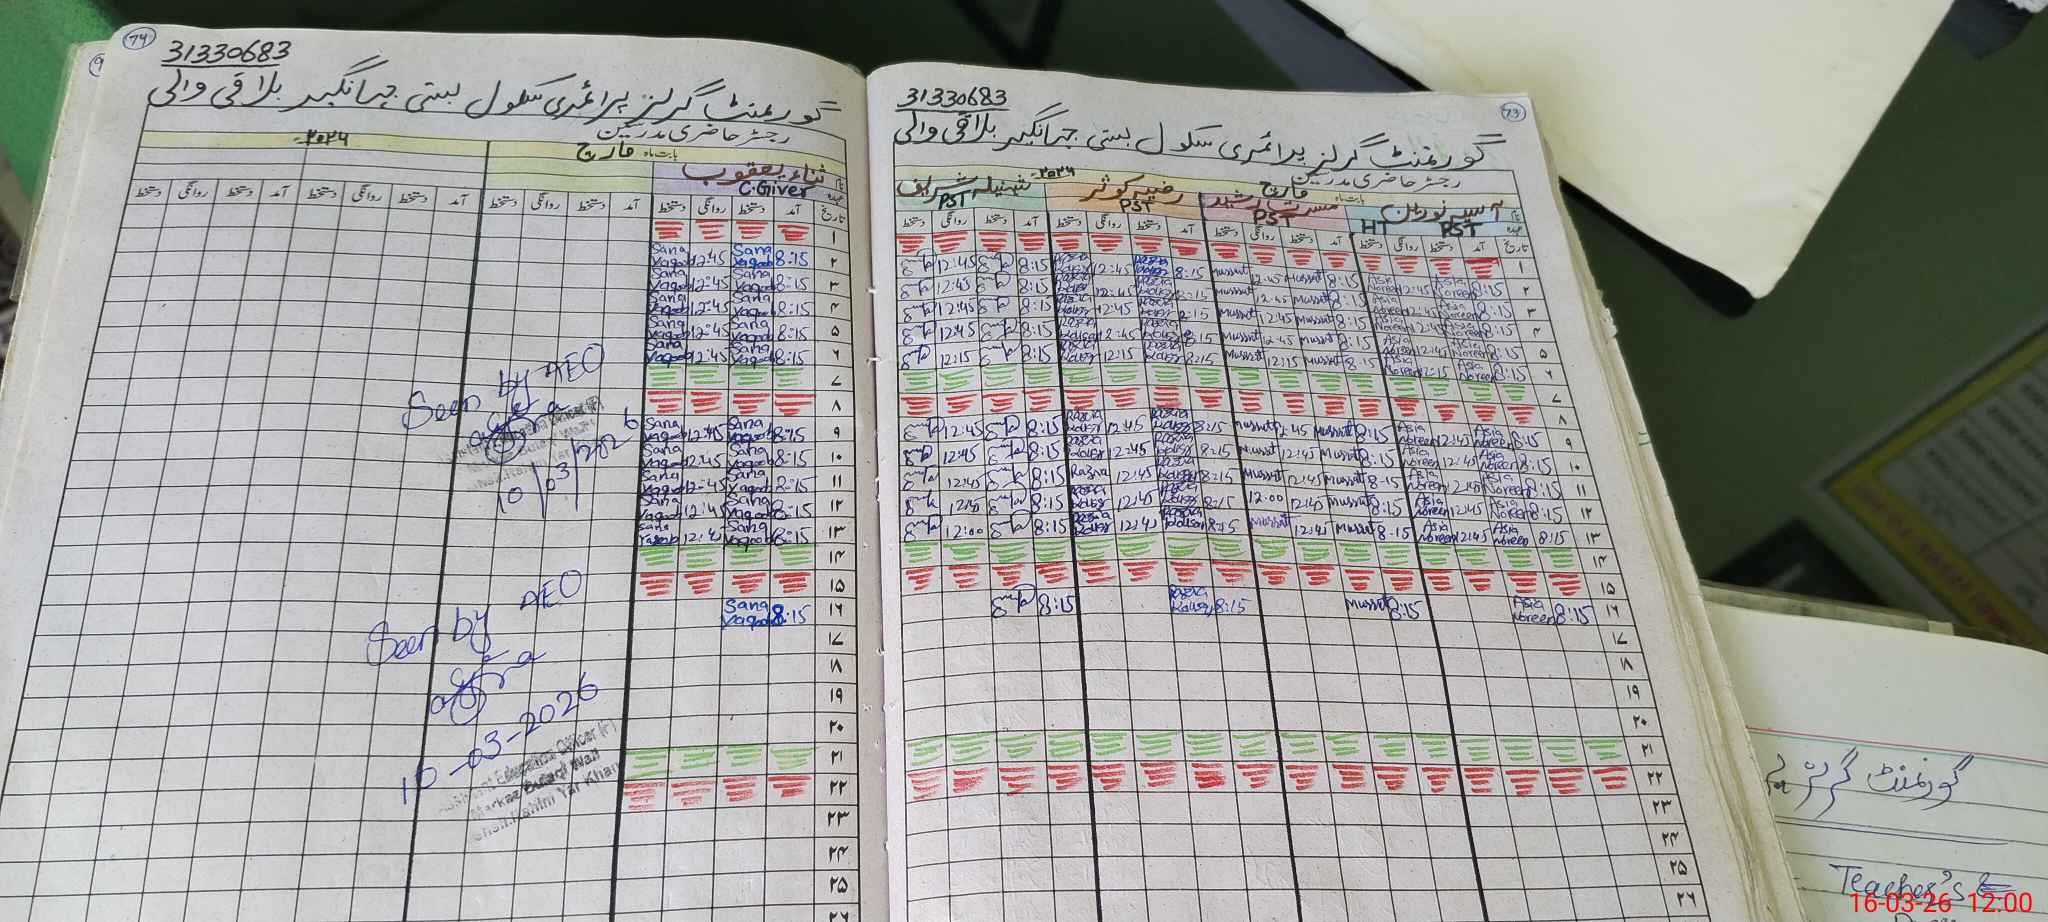 74
31330683
گورنمنٹ گرلز پرائمری سکول بستی جہانگیر بلاقی والی
رجسٹر حاضری مدرسین
بابت ماہ مارچ ۲۰۲۶
ثناء یعقوب
C.Giver
تاریخ آمد دستخط روانگی دستخط آمد دستخط روانگی دستخط آمد دستخط روانگی دستخط آمد دستخط روانگی دستخط
۱
۲ 8:15 Sana Yaqoob 12:45 Sana Yaqoob
۳ 8:15 Sana Yaqoob 12:45 Sana Yaqoob
۴ 8:15 Sana Yaqoob 12:45 Sana Yaqoob
۵ 8:15 Sana Yaqoob 12:45 Sana Yaqoob
۶ 8:15 Sana Yaqoob 12:45 Sana Yaqoob
۷
۸
۹ 8:15 Sana Yaqoob 12:45 Sana Yaqoob
۱۰ 8:15 Sana Yaqoob 12:45 Sana Yaqoob
۱۱ 8:15 Sana Yaqoob 12:45 Sana Yaqoob
۱۲ 8:15 Sana Yaqoob 12:45 Sana Yaqoob
۱۳ 8:15 Sana Yaqoob 12:45 Sana Yaqoob
۱۴
۱۵
۱۶ 8:15 Sana Yaqoob
۱۷
۱۸
۱۹
۲۰
۲۱
۲۲
۲۳
۲۴
۲۵
۲۶
Seen by AEO
10/03/2026
Seen by AEO
10-03-2026
Assistant Education Officer (F)
Markaz Bulaqi Wali
Rahim Yar Khan
73
31330683
گورنمنٹ گرلز پرائمری سکول بستی جہانگیر بلاقی والی
رجسٹر حاضری مدرسین
بابت ماہ مارچ ۲۰۲۶
آسیہ نورین مسرت رشید رضیہ کوثر شہنیلہ شریف
HT PST PST PST PST
تاریخ آمد دستخط روانگی دستخط آمد دستخط روانگی دستخط آمد دستخط روانگی دستخط آمد دستخط روانگی دستخط
۱
۲ 8:15 Asia Noreen 12:45 Asia Noreen 8:15 Mussrat 12:45 Mussrat 8:15 Razia Kausar 12:45 Razia Kausar 8:15 12:45
۳ 8:15 Asia Noreen 12:45 Asia Noreen 8:15 Mussrat 12:45 Mussrat 8:15 Razia Kausar 12:45 Razia Kausar 8:15 12:45
۴ 8:15 Asia Noreen 12:45 Asia Noreen 8:15 Mussrat 12:45 Mussrat 8:15 Razia Kausar 12:45 Razia Kausar 8:15 12:45
۵ 8:15 Asia Noreen 12:45 Asia Noreen 8:15 Mussrat 12:45 Mussrat 8:15 Razia Kausar 12:45 Razia Kausar 8:15 12:45
۶ 8:15 Asia Noreen 12:15 Asia Noreen 8:15 Mussrat 12:15 Mussrat 8:15 Razia Kausar 12:15 Razia Kausar 8:15 12:15
۷
۸
۹ 8:15 Asia Noreen 12:45 Asia Noreen 8:15 Mussrat 12:45 Mussrat 8:15 Razia Kausar 12:45 Razia Kausar 8:15 12:45
۱۰ 8:15 Asia Noreen 12:45 Asia Noreen 8:15 Mussrat 12:45 Mussrat 8:15 Razia Kausar 12:45 Razia Kausar 8:15 12:45
۱۱ 8:15 Asia Noreen 12:45 Asia Noreen 8:15 Mussrat 12:45 Mussrat 8:15 Razia Kausar 12:45 Razia 8:15 12:45
۱۲ 8:15 Asia Noreen 12:45 Asia Noreen 8:15 Mussrat 12:45 12:00 8:15 Razia Kausar 12:45 Razia Kausar 8:15 12:45
۱۳ 8:15 Asia Noreen 12:45 Asia Noreen 8:15 Mussrat 12:45 Mussrat 8:15 Razia Kausar 12:45 Razia Kausar 8:15 12:00
۱۴
۱۵
۱۶ 8:15 Asia Noreen 8:15 Mussrat 8:15 Razia Kausar 8:15
۱۷
۱۸
۱۹
۲۰
۲۱
۲۲
۲۳
۲۴
۲۵
۲۶
گورنمنٹ گرلز
Teacher's
16-03-26 12:00